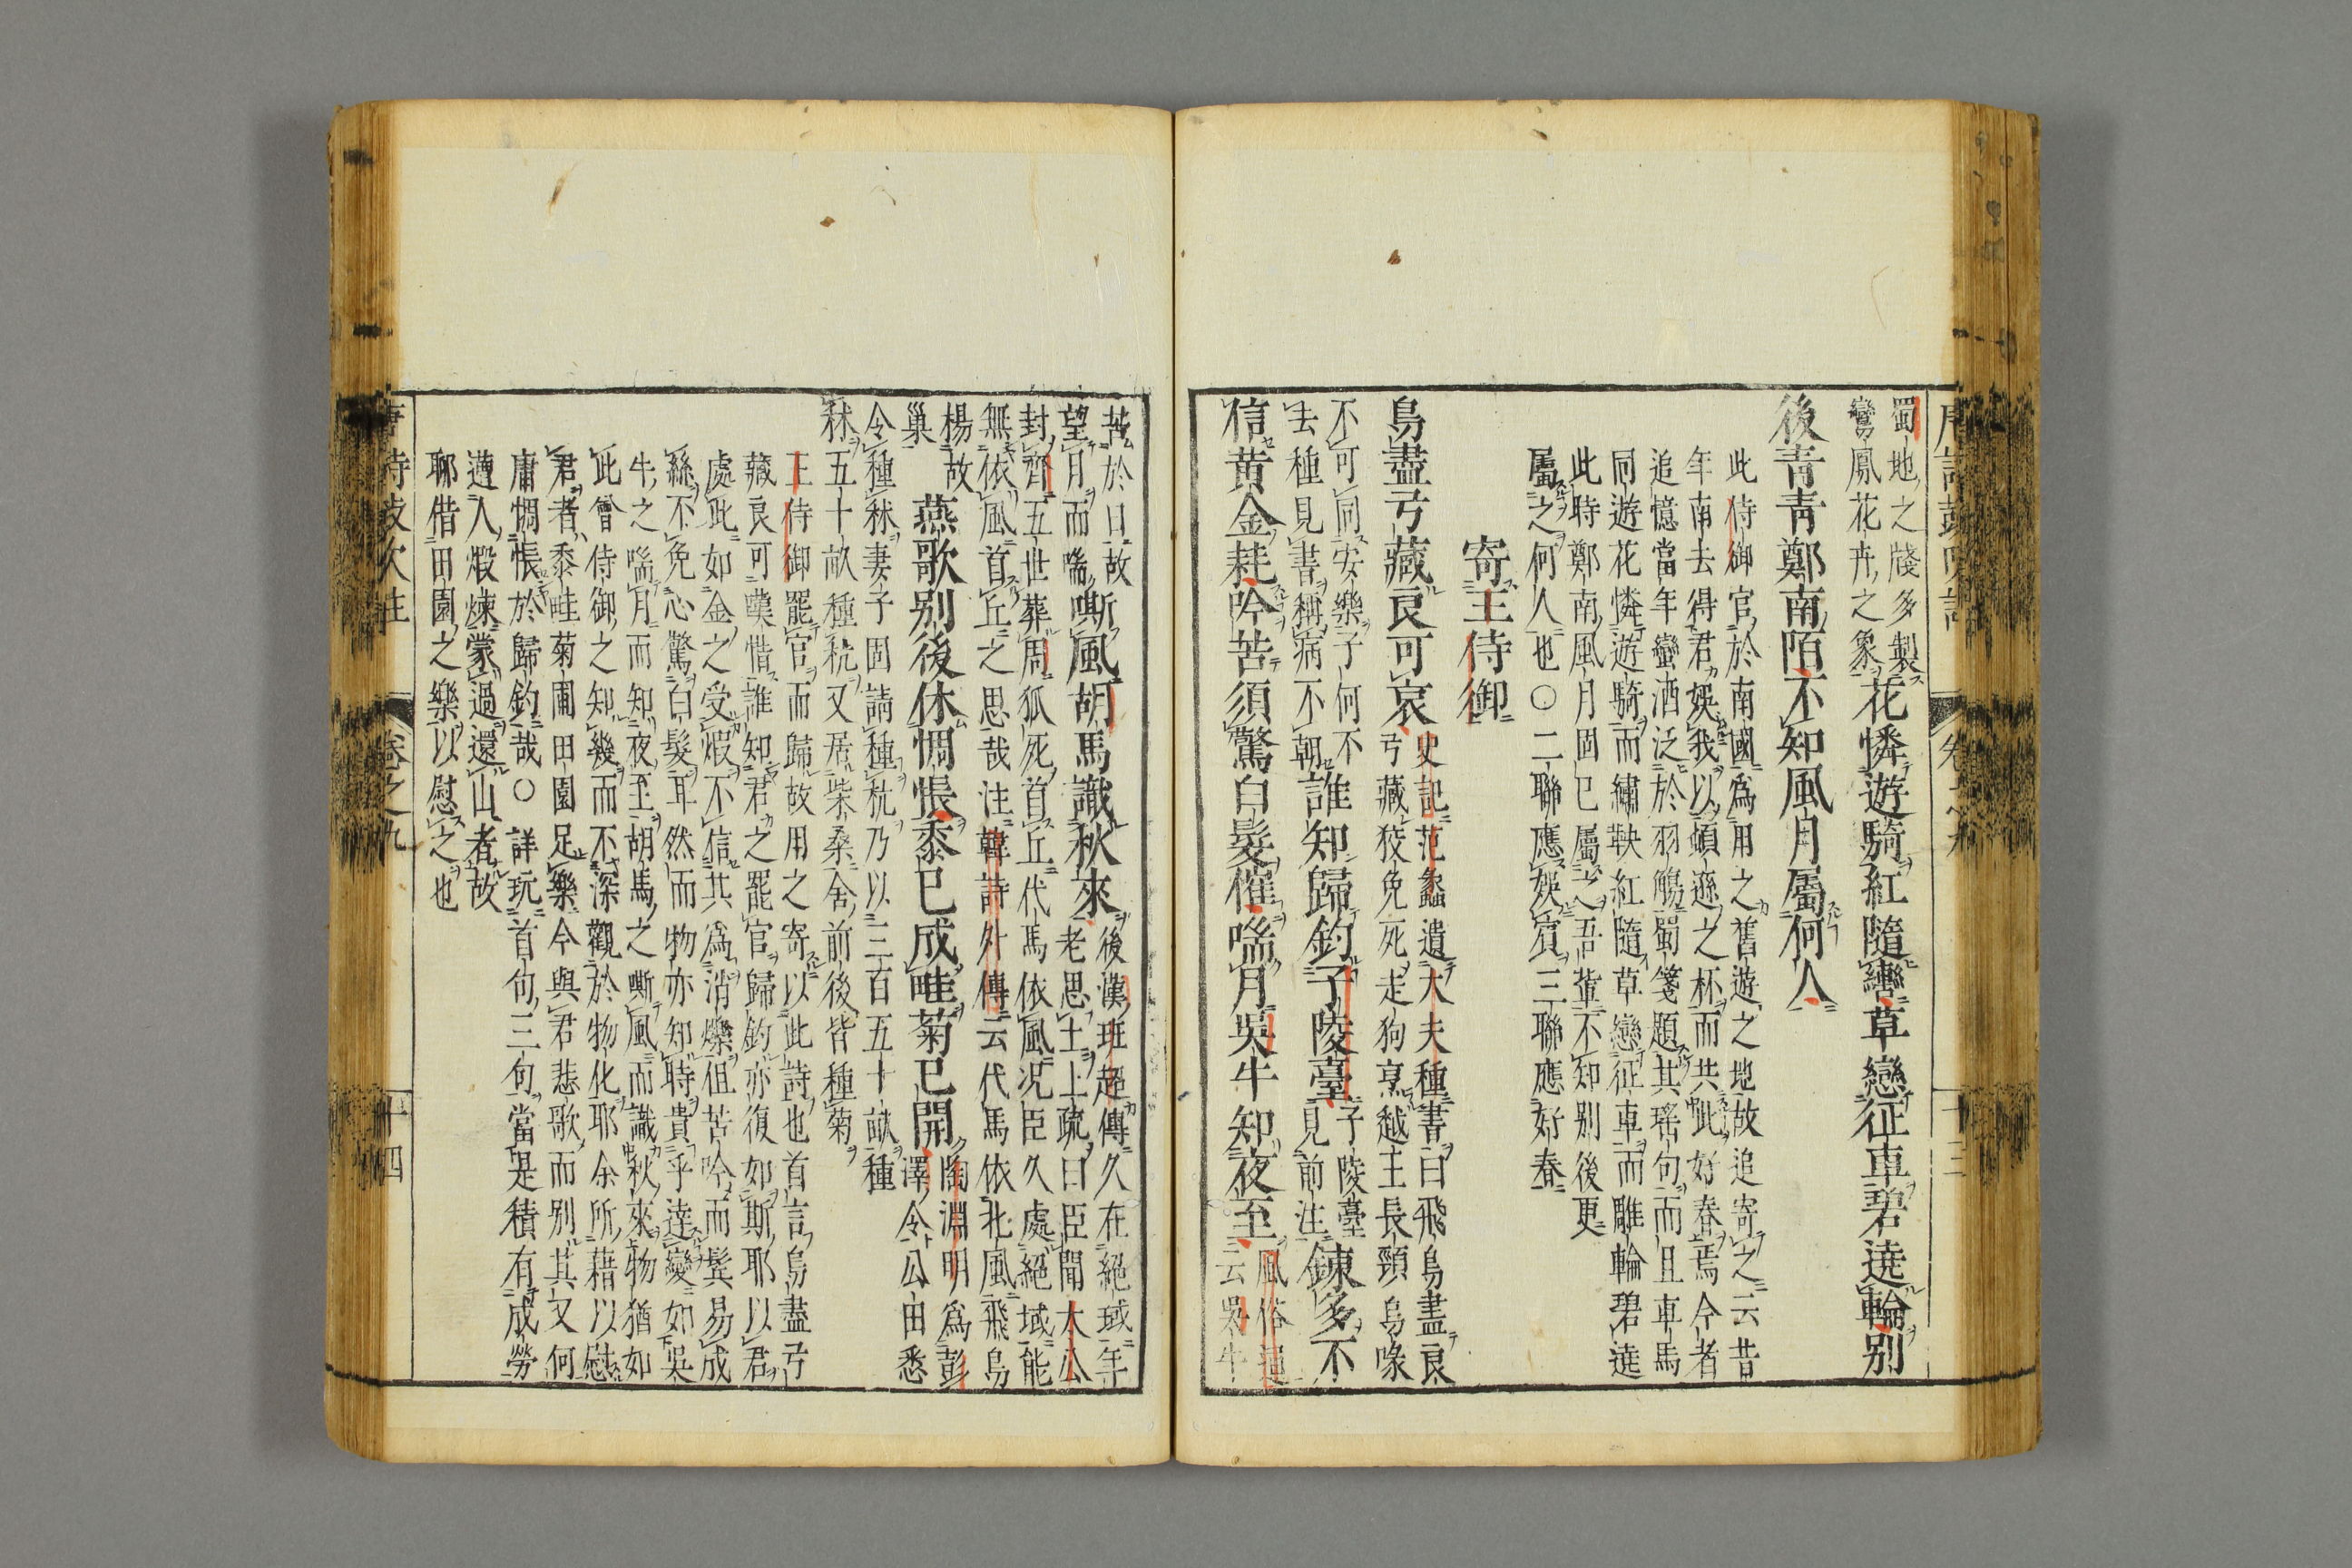 蜀地之牋多製
鸞鳳花卉之象
花憐遊騎紅隨轡草戀征車碧遶輪别
後青青鄭南陌不知風月屬何人
此侍御官於南國為用之舊遊之地故追寄之云昔
年南去得君娛我以頻遜之杯而共此好春焉今者
追憶當年蠻酒泛於羽觴蜀箋題其瑤句而且車馬
同遊花憐遊騎而繡鞅紅隨草戀征車而雕輪碧遶
此時鄭南風月固已屬之吾輩不知别後更
屬之何人也〇二聯應娛賓三聯應好春
寄王侍御
鳥盡弓藏良可哀
史記范蠡遺大夫種書曰飛鳥盡良
弓藏狡兔死走狗烹越王長頸鳥喙
不可同安樂子何不
去種見書稱病不朝
誰知歸釣子陵臺
子陵臺
見前注
鍊多不
信黄金耗吟苦須驚白髮催喘月吳牛知夜至
風俗通
云吳牛
苦於日故
望月而喘
嘶風胡馬識秋來
後漢班超傳久在絕域年
老思土上疏曰臣聞太公
封齊五世葬周狐死首丘代馬依風况臣久處絕域能
無依風首丘之思哉注韓詩外傳云代馬依北風飛鳥
楊故
巢
燕歌别後休惆悵黍已成畦菊已開
陶淵明為彭
澤令公田悉
令種秫妻子固請種秔乃以三百五十畝種
秫五十畝種秔又居柴桑舍前後皆種菊
王侍御罷官而歸故用之寄以此詩也首言鳥盡弓
藏良可嘆惜誰知君之罷官歸釣亦復如斯耶以君
處此如金之受煆不信其為消爍但苦吟而鬂易成
絲不免心驚白髮耳然而物亦知時貴乎達變如吳
牛之喘月而知夜至胡馬之嘶風而識秋來物猶如
此曾侍御之知幾而不深觀於物化耶余所藉以慰
君者黍畦菊圃田園足樂今與君悲歌而别其又何
庸惆悵於歸釣哉〇詳玩首句三句當是積有成勞
遭人煆煉蒙過還山者故
聊借田園之樂以慰之也
卷之九
十四